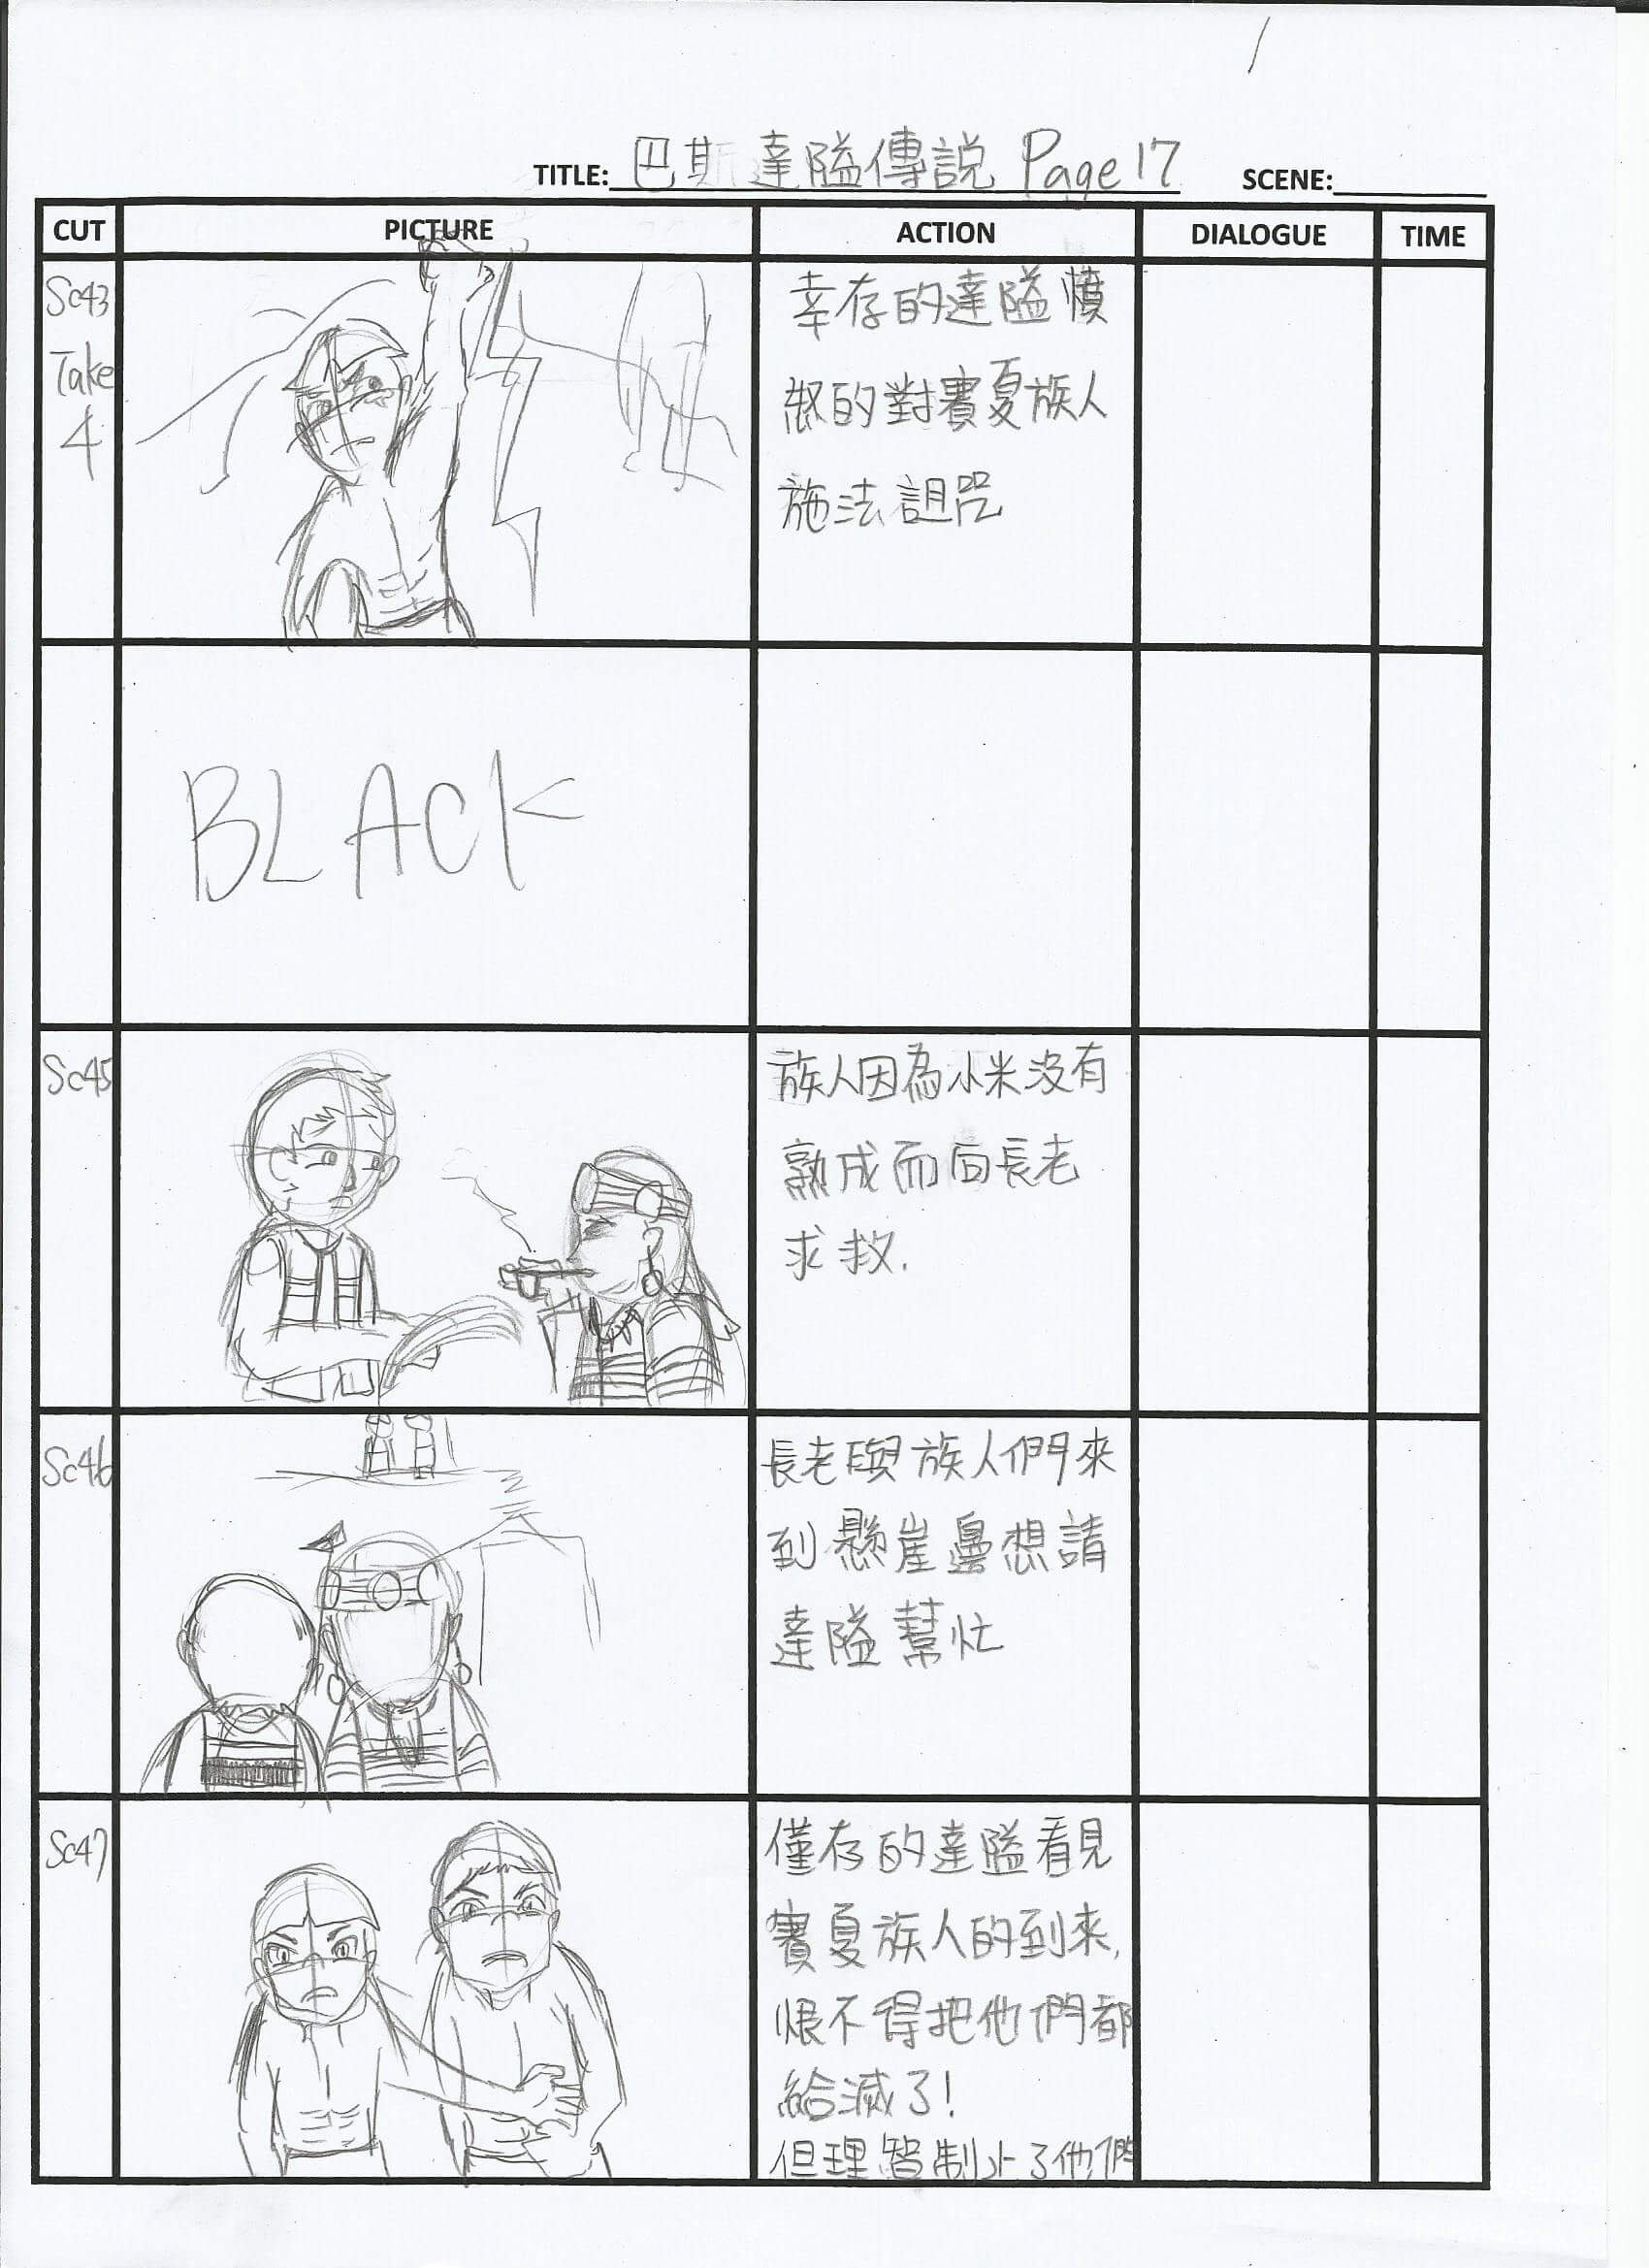 TITLE: 巴斯達隘傳說 Page 17 SCENE:
CUT PICTURE ACTION DIALOGUE TIME
Sc43
Take
4
幸存的達隘憤
怒的對賽夏族人
施法詛咒
BLACK
Sc45
族人因為小米沒有
熟成而向長老
求救.
Sc46
長老與族人們來
到懸崖邊想請
達隘幫忙
Sc47
僅存的達隘看見
賽夏族人的到來,
恨不得把他們都
給滅了!
但理智制止了他們